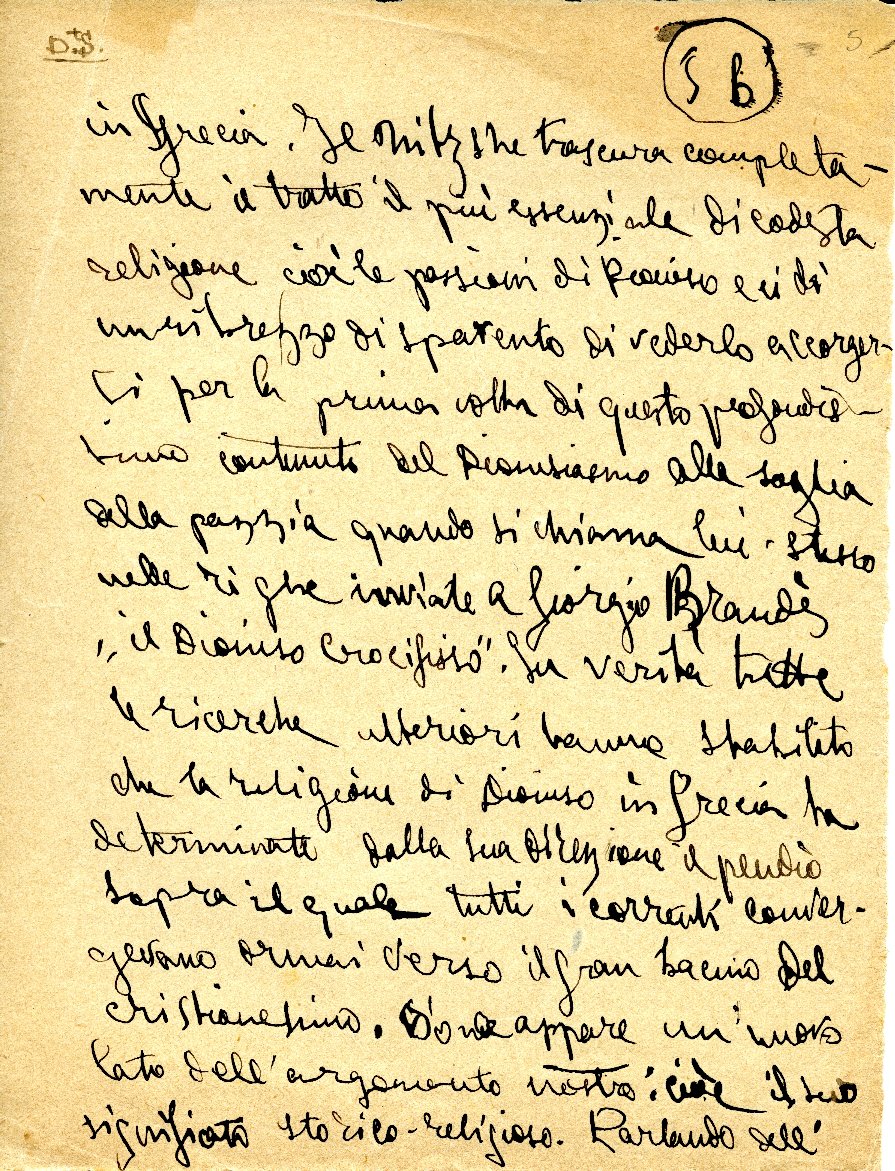 D.S.
5 B
5
in Grecia. Il Nitzshe trascura completa-
mente il tratto il più essenziale di codesta
religione cioè le passioni di Dioniso e ci dà
un ribrezzo di spavento di vederlo accorger-
si per la prima volta di questo profondis-
simo contenuto del Dionisiasmo alla soglia
della pazzia quando si chiama lui-stesso
nelle righe inviate a Giorgio Brandès
„il Dioniso Crocifisso". In verità tutte
le ricerche ulteriori hanno stabilito
che la religione di Dioniso in Grecia ha
determinato dalla sua direzione il pendio
sopra il quale tutti i correnti conver-
gevano ormai verso il gran bacino del
cristianesimo. D'onde appare un nuovo
lato dell'argomento nostro: cioè il suo
significato storico-religioso. Parlando dell'